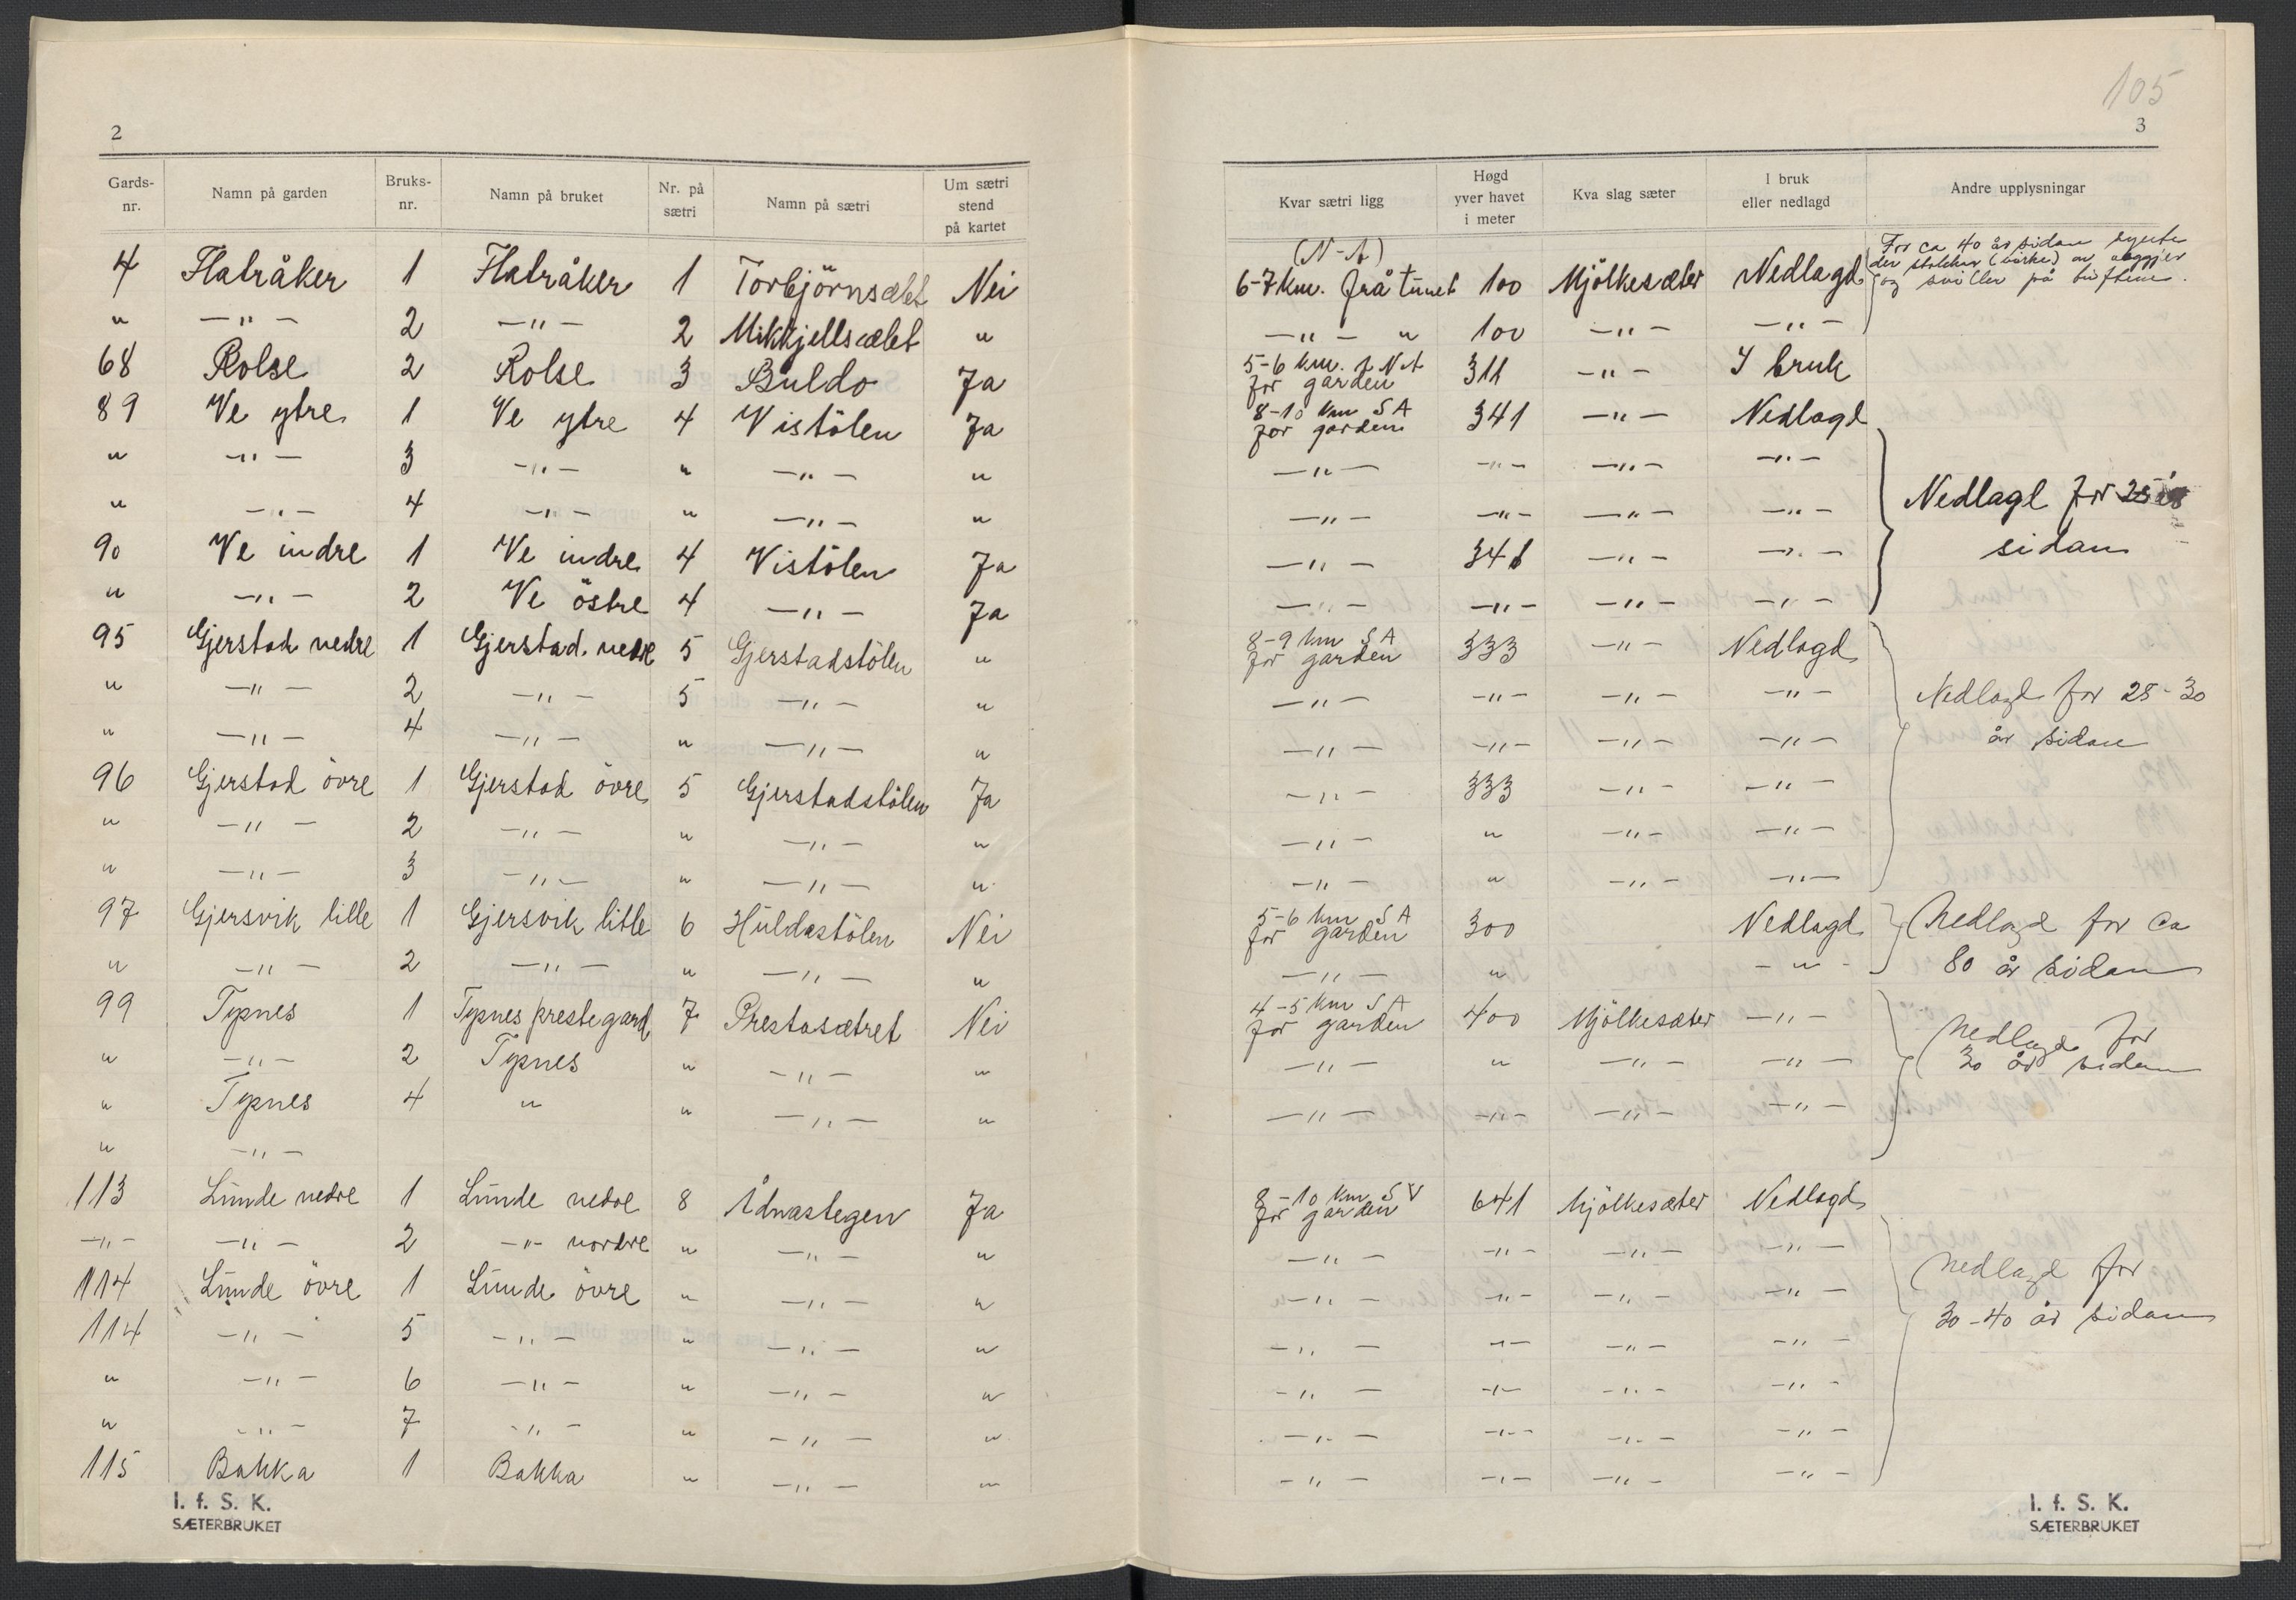 2
Gards-nr. Namn på garden Bruks-nr. Namn på bruket Nr. på sætri Namn på sætri Um sætri stend på kartet
4 Flatråker 1 Flatråker 1 Torbjörnsælet Nei
" —"— 2 —"— 2 Mikkjellsælet "
68 Rolse 2 Rolse 3 Buldo Ja
89 Ve ytre 1 Ve ytre 4 Vistölen Ja
" —"— 3 —"— " —"— "
" —"— 4 —"— " —"— "
90 Ve indre 1 Ve indre 4 Vistölen Ja
" —"— 2 Ve östre 4 —"— Ja
95 Gjerstad nedre 1 Gjerstad nedre 5 Gjerstadstölen "
" —"— 2 —"— 5 —"— "
" —"— 4 —"— " —"— "
96 Gjerstad övre 1 Gjerstad övre 5 Gjerstadstölen Ja
" —"— 2 —"— " —"— "
" —"— 3 —"— " —"— "
97 Gjersvik lille 1 Gjersvik lille 6 Huldastölen Nei
" —"— 2 —"— " —"— "
99 Tysnes 1 Tysnes prestegard 7 Prestasætret Nei
" —"— 2 Tysnes " —"— "
" Tysnes 4 " " —"— "
" —"—
113 Lunde nedre 1 Lunde nedre 8 Ådnastegen Ja
—"— —"— 2 —"— nordre " —"— "
114 Lunde övre 1 Lunde övre " —"— "
114 —"— 5 —"— " —"— "
" —"— 6 —"— " —"— "
" —"— 7 —"— " —"— "
115 Bakka 1 Bakka " —"— "
I. f. S. K.
SÆTERBRUKET
105
3
Kvar sætri ligg Høgd yver havet i meter Kva slag sæter I bruk eller nedlagd Andre upplysningar
(N-A)
6-7 km. frå tunet 100 Mjölkesæter Nedlagd For ca 40 år sidan
og sviller på tuftene.
—"— " 100 —"— —"—
5-6 km. NA
for garden 311 —"— I bruk
8-10 km SA
for garden 341 —"— Nedlagd
—"— —"— —"— —"—
—"— —"— —"— —"— Nedlagt for 25 år
—"— 341 —"— —"— sidan
—"— —"— —"— —"—
8-9 km SA
for garden 333 —"— Nedlagd
—"— —"— —"— —"— Nedlagd for 25-30
—"— —"— —"— —"— år sidan
—"— 333 —"— —"—
—"— " —"— —"—
—"— " —"— —"—
5-6 km SA
for garden 300 Nedlagd Nedlagd for ca
—"— " —"— 80 år sidan
4-5 km SA
for garden 400 Mjölkesæter —"— Nedlagd for
—"— " —"— —"— 30 år sidan
—"— —"— —"— —"—
8-10 km SV
for garden 641 Mjölkesæter Nedlagd
—"— —"— —"— —"— Nedlagd for
—"— —"— —"— —"— 30-40 år sidan
—"— —"— —"— —"—
—"— —"— —"— —"—
—"— —"— —"— —"—
—"— —"— —"— —"—
I. f. S. K.
SÆTERBRUKET